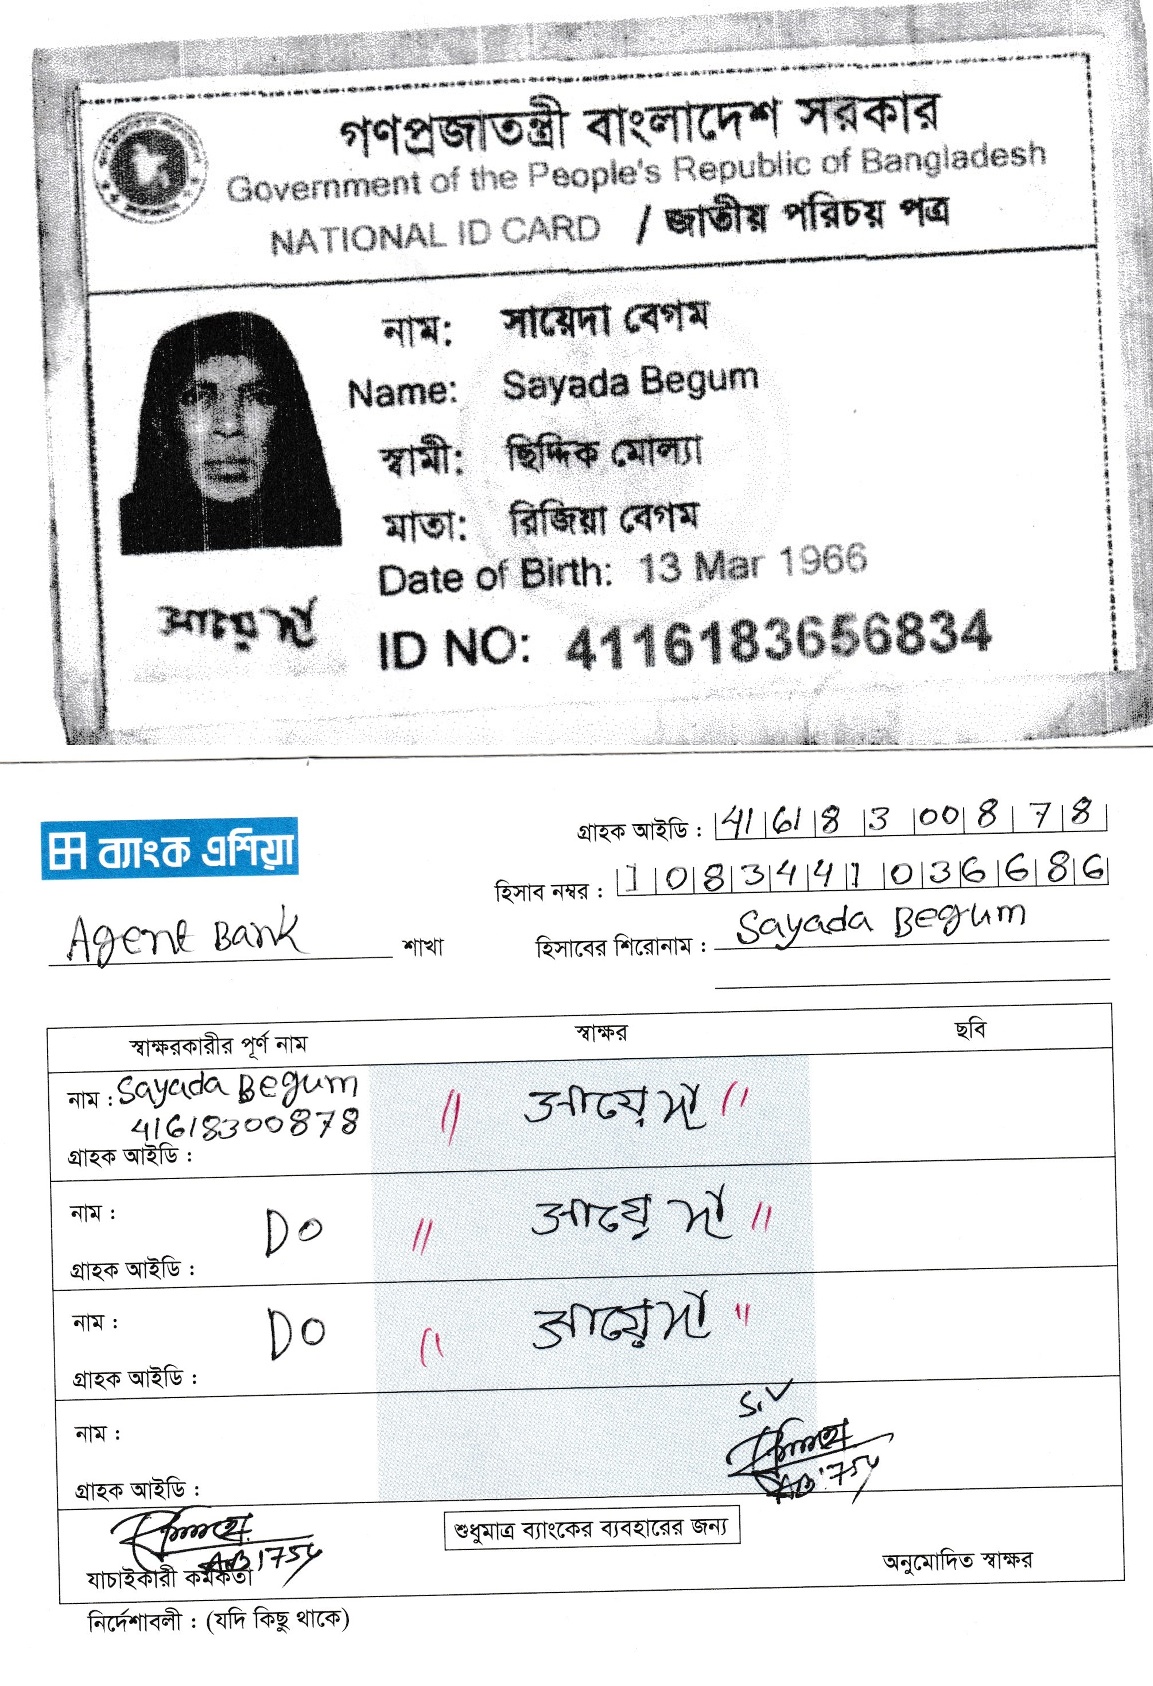 গণপ্রজাতন্ত্রী বাংলাদেশ সরকার
Government of the People's Republic of Bangladesh
NATIONAL ID CARD / জাতীয় পরিচয় পত্র
নাম: সায়েদা বেগম
Name: Sayada Begum
স্বামী: ছিদ্দিক মোল্যা
মাতা: রিজিয়া বেগম
Date of Birth: 13 Mar 1966
সায়েদা
ID NO: 4116183656834
ব্যাংক এশিয়া
গ্রাহক আইডি : 41618300878
হিসাব নম্বর : 1083441036686
Agent Bank শাখা
হিসাবের শিরোনাম : Sayada Begum
স্বাক্ষরকারীর পূর্ণ নাম স্বাক্ষর ছবি
নাম : Sayada Begum // সায়েদা //
41618300878
গ্রাহক আইডি :
নাম : DO // সায়েদা //
গ্রাহক আইডি :
নাম : DO // সায়েদা //
গ্রাহক আইডি :
S.V
নাম :
গ্রাহক আইডি :
শুধুমাত্র ব্যাংকের ব্যবহারের জন্য
যাচাইকারী কর্মকর্তা
অনুমোদিত স্বাক্ষর
নির্দেশাবলী : (যদি কিছু থাকে)